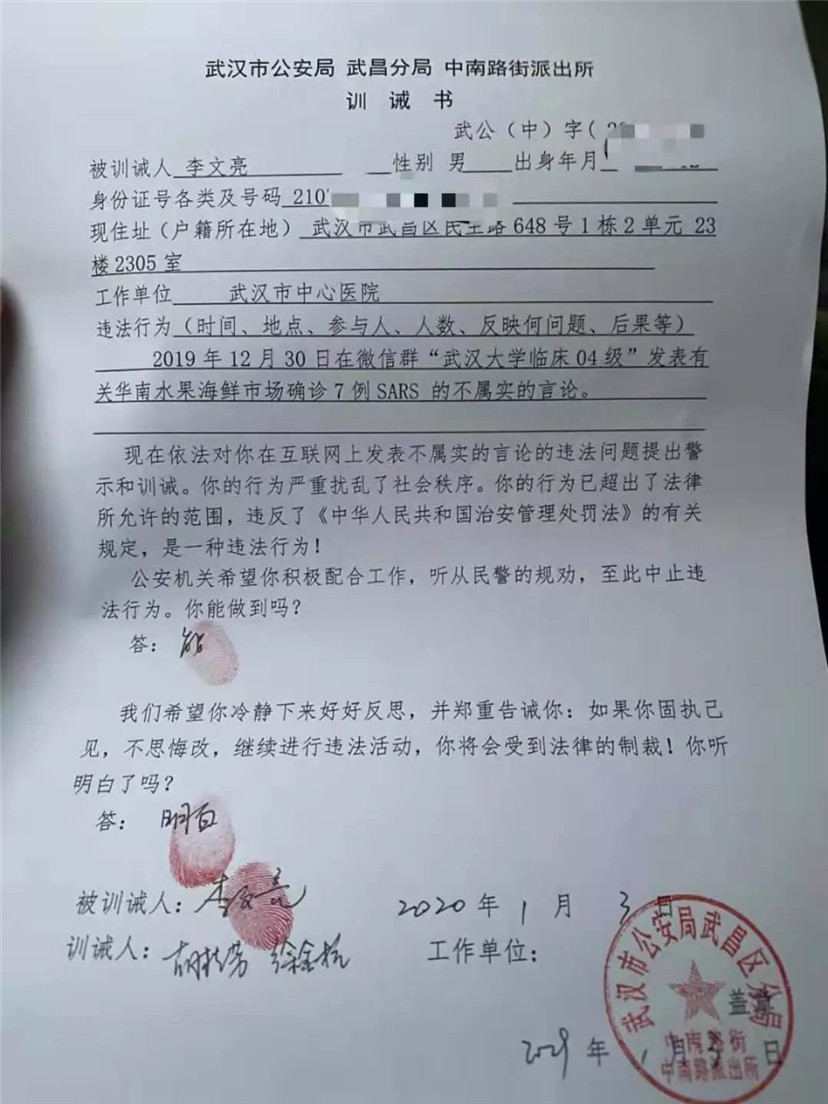 武汉市公安局 武昌分局 中南路街派出所
训 诫 书
武公（中）字（
被训诫人 李文亮 性别 男 出身年月
身份证号各类及号码 210
现住址（户籍所在地） 武汉市武昌区民主路 648 号 1 栋 2 单元 23
楼 2305 室
工作单位 武汉市中心医院
违法行为（时间、地点、参与人、人数、反映何问题、后果等）
2019 年 12 月 30 日在微信群“武汉大学临床 04 级”发表有
关华南水果海鲜市场确诊 7 例 SARS 的不属实的言论。
现在依法对你在互联网上发表不属实的言论的违法问题提出警
示和训诫。你的行为严重扰乱了社会秩序。你的行为已超出了法律
所允许的范围，违反了《中华人民共和国治安管理处罚法》的有关
规定，是一种违法行为！
公安机关希望你积极配合工作，听从民警的规劝，至此中止违
法行为。你能做到吗？
答： 能
我们希望你冷静下来好好反思，并郑重告诫你：如果你固执己
见，不思悔改，继续进行违法活动，你将会受到法律的制裁！你听
明白了吗？
答： 明白
被训诫人：李文亮 2020 年 1 月 3 日
训诫人： 工作单位：
武汉市公安局武昌区分局
盖章
中南路街
中南路派出所
年 1 月 3 日